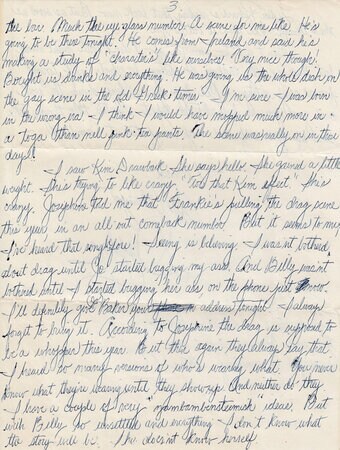 3.
the bar. Mark the eye glass number. A scene for me like. He's
going to be there tonight. He comes from Ireland and said he's
making a study of "characters" like ourselves. Very nice though.
Bought us drinks and everything. He was giving us the whole dish on
the gay scene in the old Greek times. I'm sure I was born
in the wrong era. I think I would have mopped much more in
a toga then nell pink fur pants. The scene was really on in those
days!
I saw Kim Drawback. She says hello. She gained a little
weight. She's trying to like crazy "for that Kim effect". She's
crazy. Josephine told me that Frankie's pulling the drag scene
this year in an all out comeback number. But it seems to me
I've heard that song before! Seeing is believing. I wasn't bothered
about drag until Jo started bugging my ass. And Billy wasn't
bothered until I started bugging her ass on the phone just now.
I'll definitely get Baker your address tonight. I always
forget to bring it. According to Josephine the drag is supposed to
be a whopper this year. But then again they always say that.
I heard so many versions of who's wearing what. You never
know what they're wearing until they show up. And neither do they.
I have a couple of very " " ideas. But
with Billy so unsettled and everything I don't know what
the story will be. She doesn't know herself.